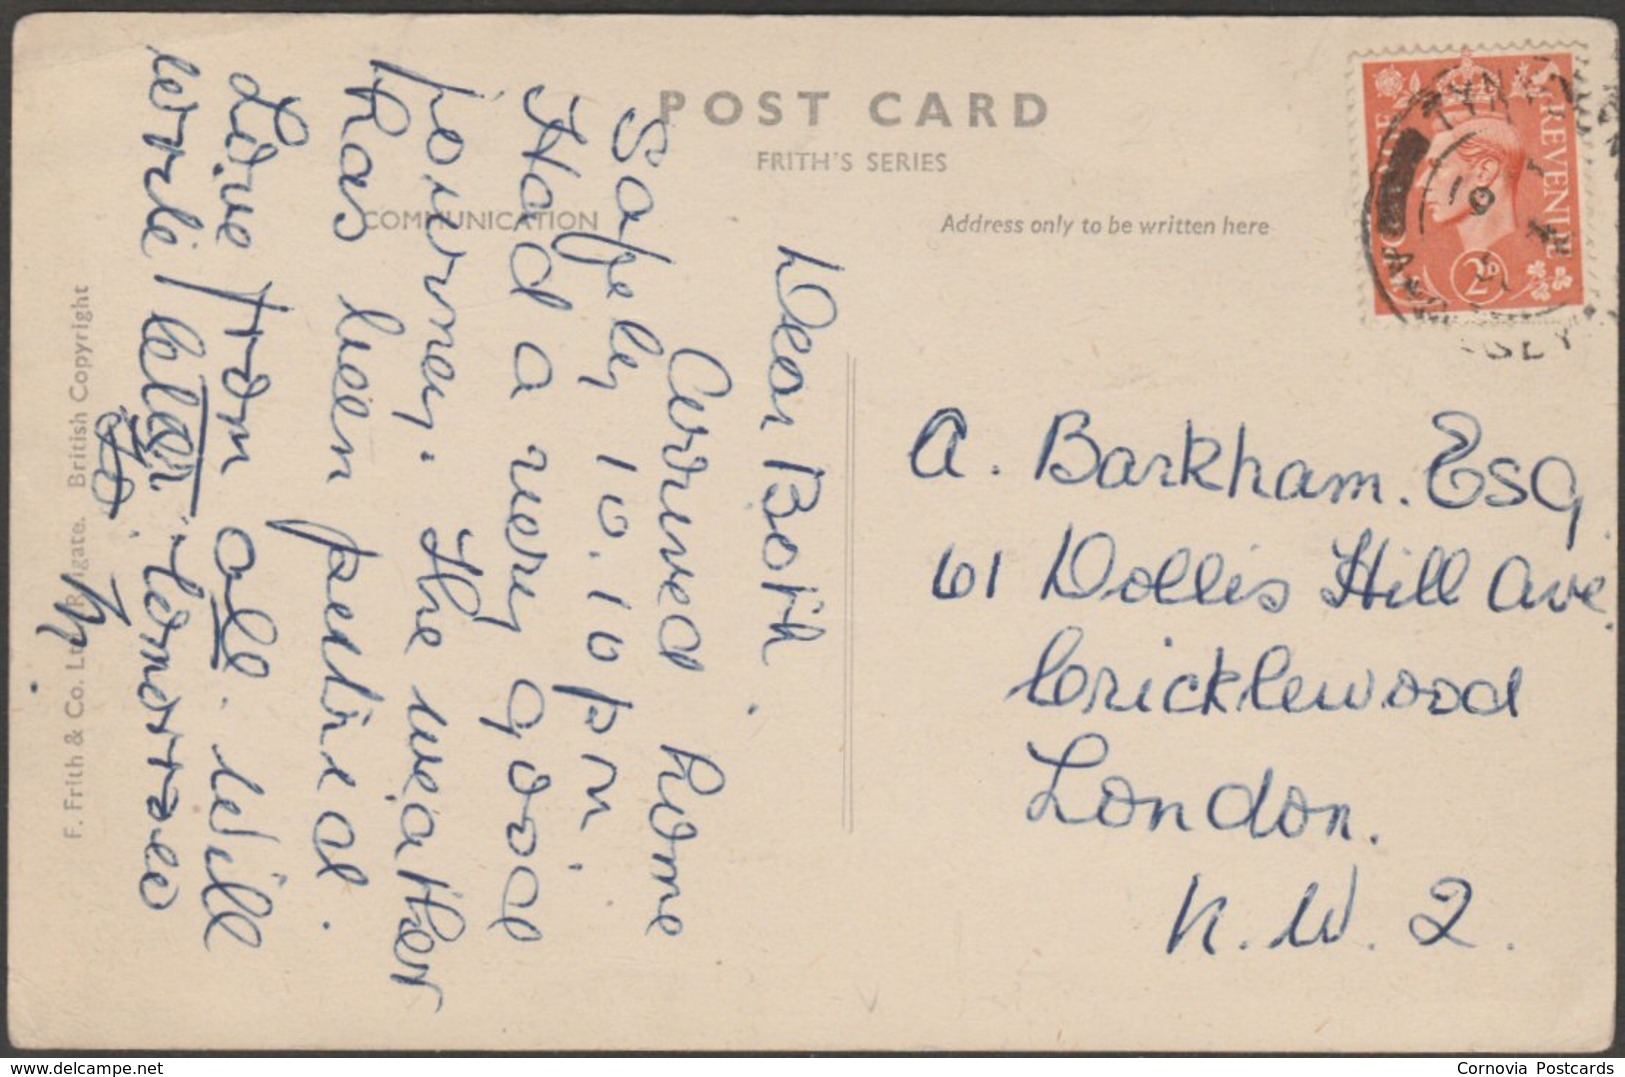 POST CARD
FRITH'S SERIES
COMMUNICATION
Address only to be written here
POSTAGE REVENUE
2D
Dear Both.
Arrived Home
Safely 10.10 pm
Had a very good
journey. The weather
has been perfect.
Love from all. Will
write later
A. Barkham. Esq
61 Dollis Hill Ave.
Cricklewood
London.
N.W.2.
F. Frith & Co. Ltd. Reigate. British Copyright
delcampe.net
Cornovia Postcards